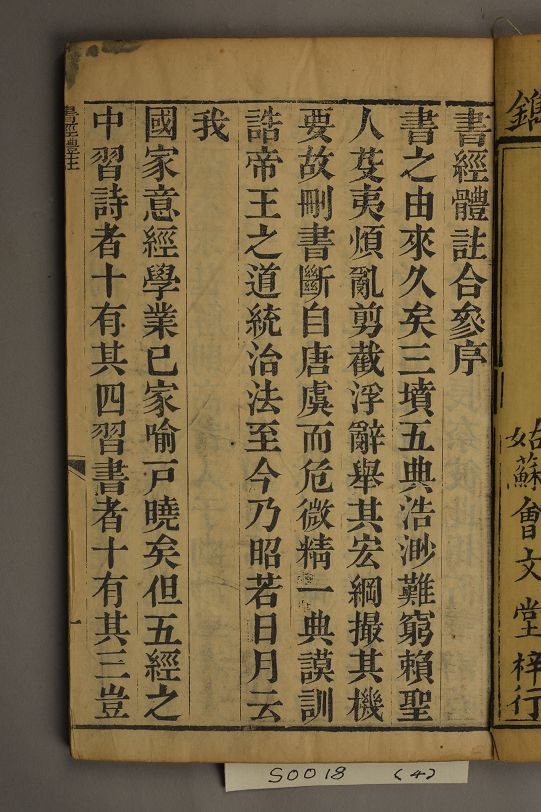 鐫
姑蘇會文堂梓行
書經體註合參序
書之由來久矣三墳五典浩渺難窮賴聖
人芟夷煩亂剪截浮辭舉其宏綱撮其機
要故刪書斷自唐虞而危微精一典謨訓
誥帝王之道統治法至今乃昭若日月云
我
國家意經學業已家喻戸曉矣但五經之
中習詩者十有其四習書者十有其三豈
書經體註
一
S0018 (4)